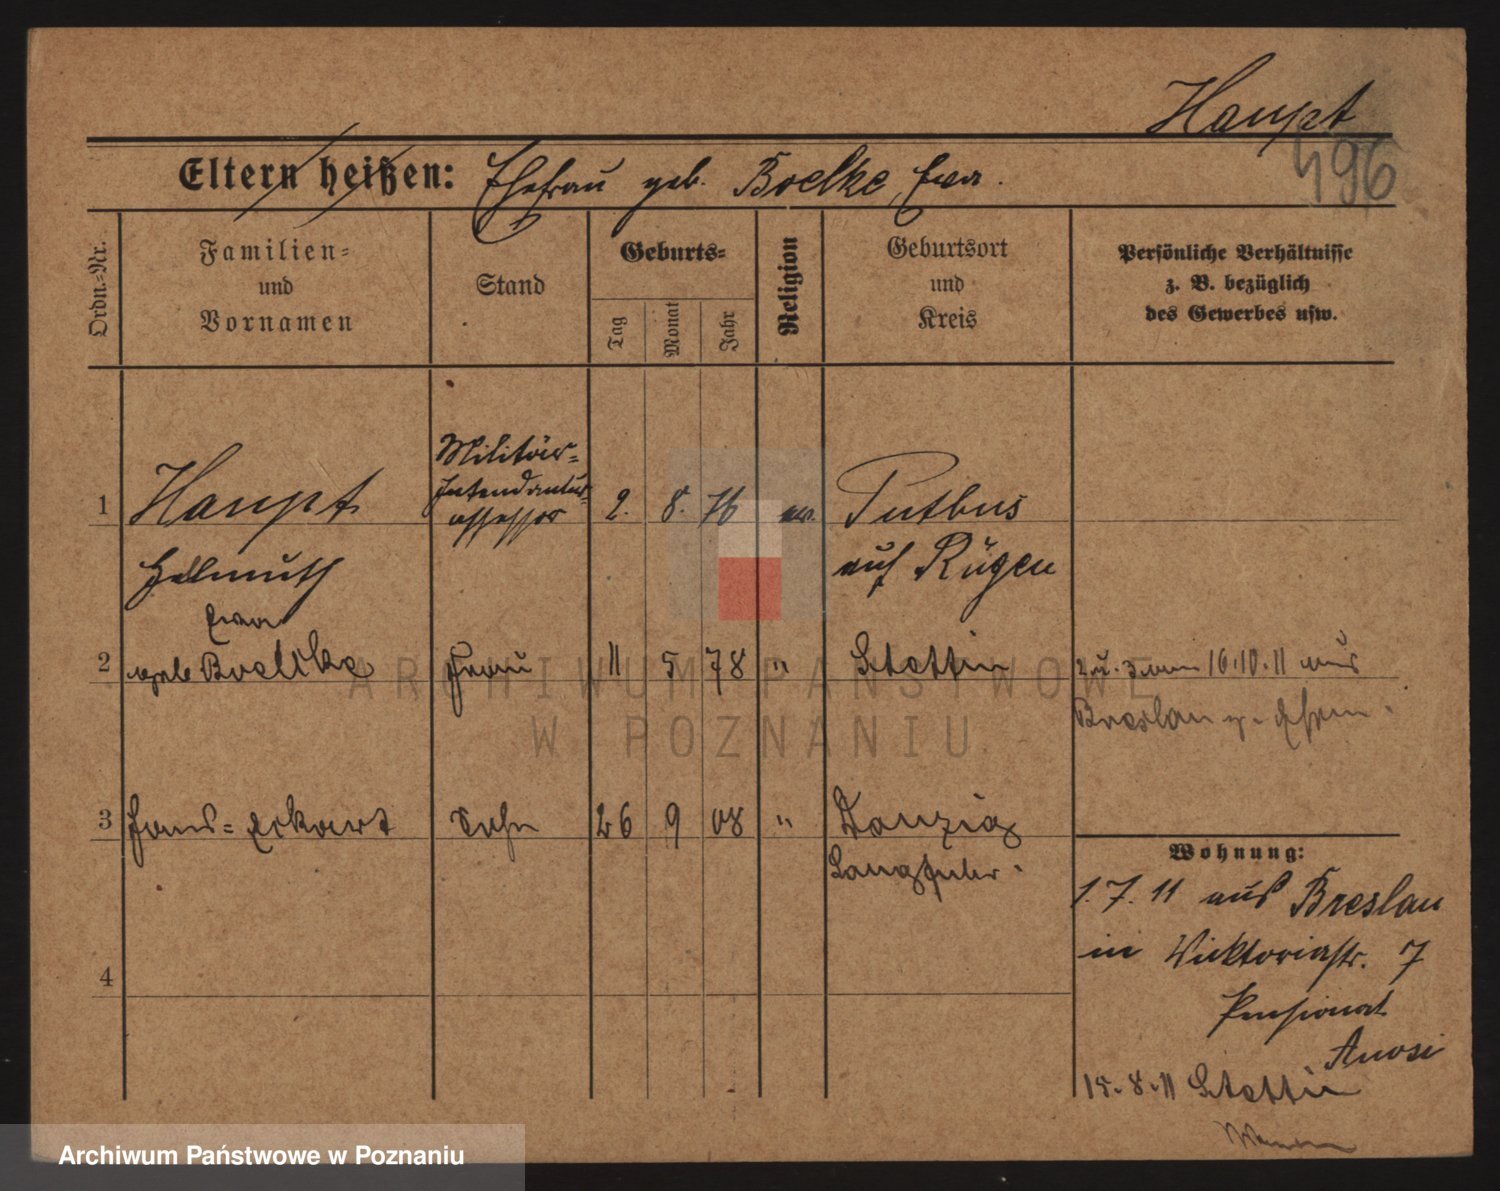 Haupt
496
Eltern heißen: Ehefrau geb. Boelke, Eva.
Ordn.-Nr.
Familien-
und
Vornamen
Stand
Geburts-
Tag
Monat
Jahr
Religion
Geburtsort
und
Kreis
Persönliche Verhältnisse
z. B. bezüglich
des Gewerbes usw.
Militär-
Intendantur-
assessor
1 Haupt 2. 8. 76 ev. Putbus
Hellmuth auf Rügen
Eva
2 geb Boelke Frau 11 5 78 " Stettin
2 u. 3 am 16.10.11 aus
Breslau z. Ehem.
3 Hans-Eckart Sohn 26 9 08 " Danzig
Langfuhr.
4
Wohnung:
1.7.11 aus Breslau
in Viktoriastr. 7
Pensionat
15.8.11 Stettin
ARCHIWUM PAŃSTWOWE
W POZNANIU
Archiwum Państwowe w Poznaniu